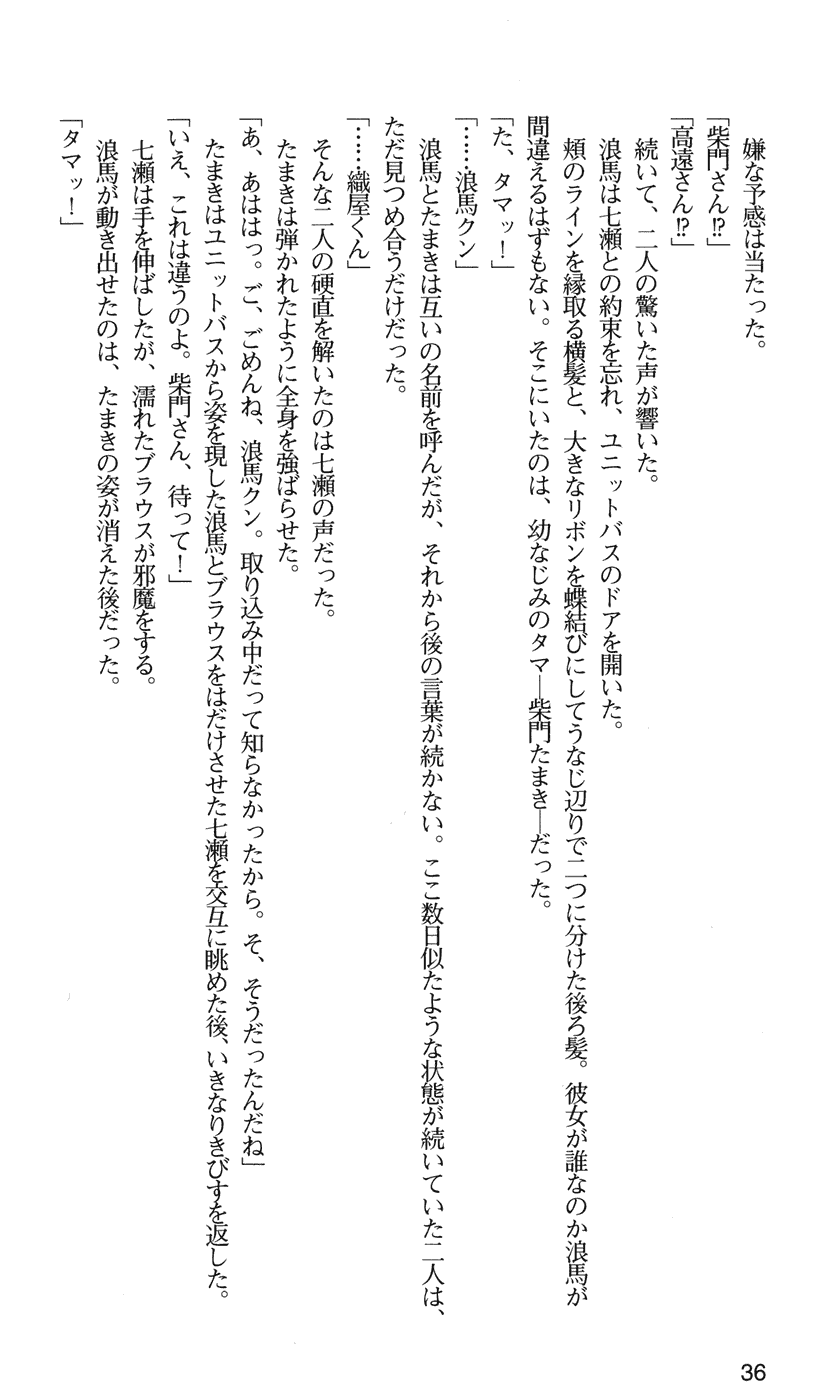 嫌な予感は当たった。
「柴門さん!?」
「高遠さん!?」
続いて、二人の驚いた声が響いた。
浪馬は七瀬との約束を忘れ、ユニットバスのドアを開いた。
頬のラインを縁取る横髪と、大きなリボンを蝶結びにしてうなじ辺りで二つに分けた後ろ髪。彼女が誰なのか浪馬が
間違えるはずもない。そこにいたのは、幼なじみのタマ―柴門たまき―だった。
「た、タマッ！」
「……浪馬クン」
浪馬とたまきは互いの名前を呼んだが、それから後の言葉が続かない。ここ数日似たような状態が続いていた二人は、
ただ見つめ合うだけだった。
「……織屋くん」
そんな二人の硬直を解いたのは七瀬の声だった。
たまきは弾かれたように全身を強ばらせた。
「あ、あははっ。ご、ごめんね、浪馬クン。取り込み中だって知らなかったから。そ、そうだったんだね」
たまきはユニットバスから姿を現した浪馬とブラウスをはだけさせた七瀬を交互に眺めた後、いきなりきびすを返した。
「いえ、これは違うのよ。柴門さん、待って！」
七瀬は手を伸ばしたが、濡れたブラウスが邪魔をする。
浪馬が動き出せたのは、たまきの姿が消えた後だった。
「タマッ！」
36